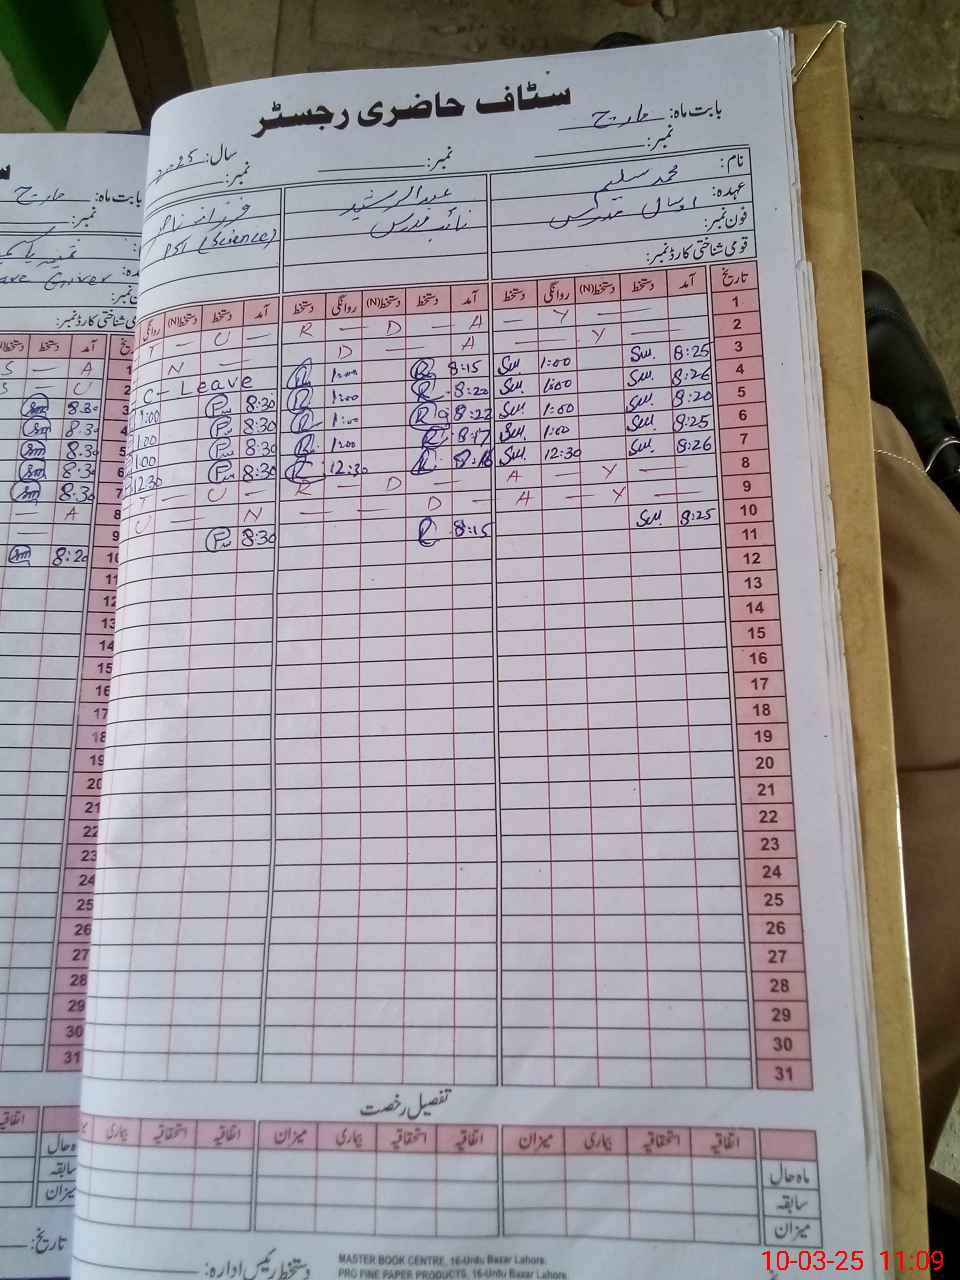 سٹاف حاضری رجسٹر
بابت ماہ: مارچ
نمبر:
نمبر:
سال: 2025
نمبر:
نام: محمد سلیم
عہدہ: اول مدرس
فون نمبر:
قومی شناختی کارڈ نمبر:
عبدالرشید
نائب مدرس
PST (Science)
تاریخ آمد دستخط دستخط(N) روانگی دستخط آمد دستخط دستخط(N) روانگی دستخط آمد دستخط دستخط(N) روانگی
1 S — A — T — U — R — D — A — Y —
2 S — U — N — D — A — Y —
3 8:25 1:00 8:15 1:00 C - Leave
4 8:26 1:00 8:20 1:00 8:30 1:00
5 8:20 1:00 8:22 1:00 8:30 1:00
6 8:25 1:00 8:17 1:00 8:30 1:00
7 8:26 12:30 8:16 12:30 8:30 12:30
8 S — A — T — U — R — D — A — Y —
9 U — N — D — A — Y —
10 8:25 8:15 8:30
11
12
13
14
15
16
17
18
19
20
21
22
23
24
25
26
27
28
29
30
31
تفصیل رخصت
اتفاقیہ استحقاقیہ بیماری میزان اتفاقیہ استحقاقیہ بیماری میزان اتفاقیہ استحقاقیہ بیماری
ماہ حال
سابقہ
میزان
دستخط رئیس ادارہ:
MASTER BOOK CENTRE, 16-Urdu Bazar Lahore.
PRG FINE PAPER PRODUCTS, 16-Urdu Bazar Lahore.
بابت ماہ: مارچ
نمبر:
8:30
8:30
8:30
8:30
8:30
8:20
اتفاقیہ
ماہ حال
سابقہ
میزان
تاریخ:
10-03-25 11:09